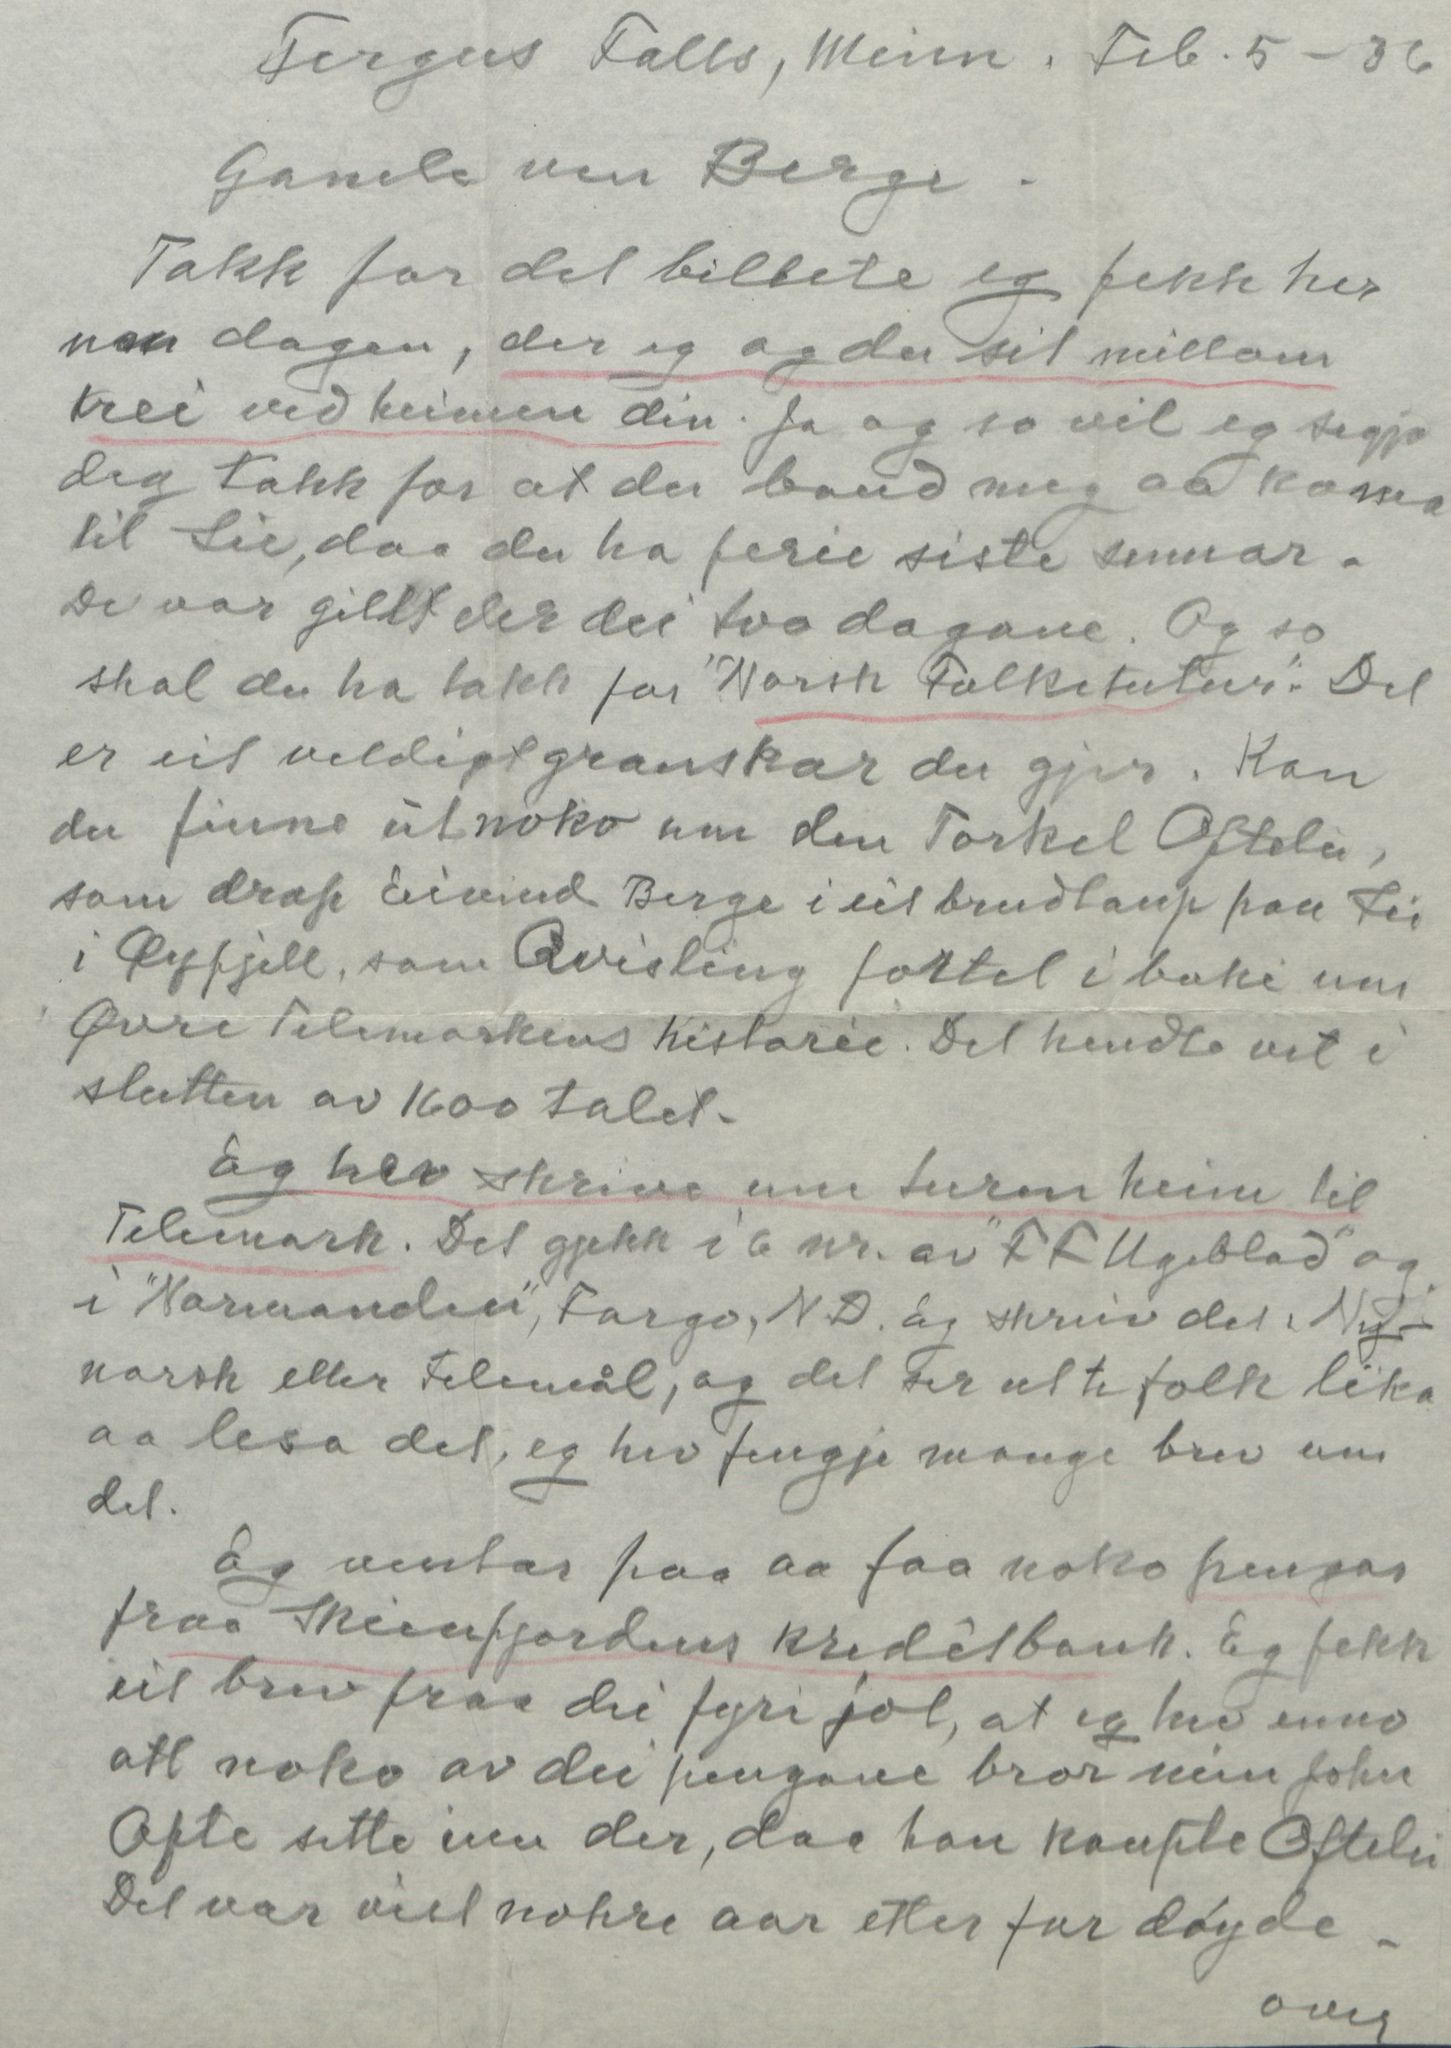 Fergus Falls, Minn. Feb. 5 – 36
Gamle ven Berge.
Takk for det billete eg fekk her
non dagen, der eg og du sit millom
trei ved heimen din. Ja og so vil eg segja
deg takk for at du baud meg aa koma
til Lie, daa du ha ferie siste summar.
De var gillt der dei tvo dagane. Og so
skal du ha takk for "Norsk Folkekutur". Det
er eit veldigt granskar du gjer. Kan
du finne út noko um den Torkel Oftelie,
som drap Eivind Berge i eit brudlaup paa Lie
i Øyfjell, som Qvisling fortel i boki um
Øvre Telemarkens historie. Det hendte vet i
slutten av 1600 talet.
Eg hev skrive um turen heim til
Telemark. Det gjekk i 6 nr. av "F F Ugeblad" og
i "Normanden", Fargo, N.D. Eg skreiv det i Ny-
norsk eller Telemål, og det ser ut te folk lika
aa lesa det, eg hev fengje mange brev um
det.
Eg ventar paa aa faa noko pengar
fraa Skiensfjordens kreditbank. Eg fekk
eit brev fraa dei fyri jol, at eg hev enno
att noko av dei pengane bror min John
Ofte sette inn der, daa han kaupte Oftelie
Det var vist nokre aar etter far döyde.
over